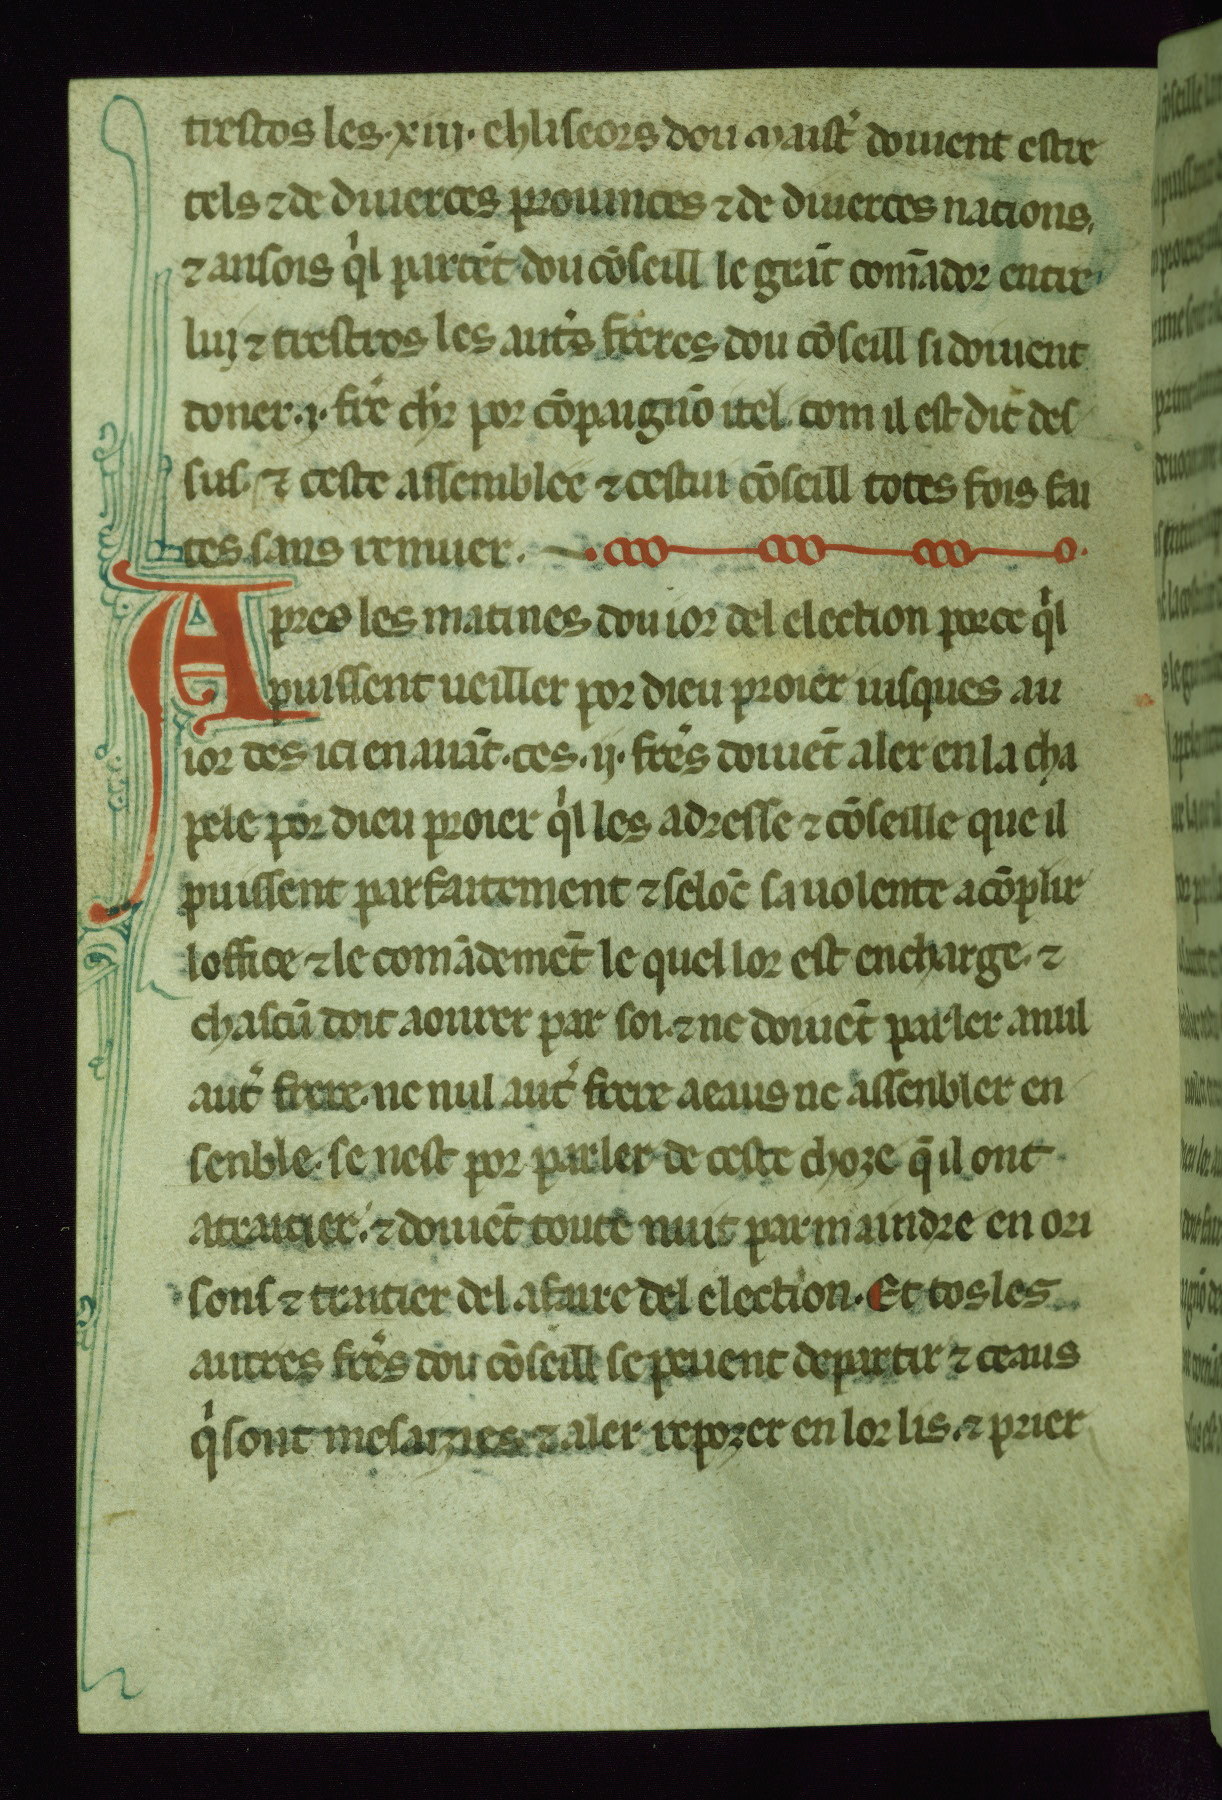 trestos les·xiii· ehliseors dou maist᷑ doiuent estre
tels ⁊ de diuerces prouinces ⁊ de diuerces nacions.
⁊ ansois qͥl partēt dou cōseill le grāt comādor entre
luy ⁊ trestros les aut᷑s freres dou cōseill si doiuent
doner·j· fre᷑ ch᷑r por cōpaignō itel com il est dit des
sus· ⁊ ceste assemblee ⁊ cestui cōseill totes fois fai
tes sans remuer.
Apres les matines dou ior del election porce qͥl
puissent ueiller por dieu proier iusques au
ior des ici en auāt·ces·ij· fre᷑s doiuēt aler en la cha
pele por dieu proier qͥl les adresse ⁊ cōseille que il
puissent parfaitement ⁊ seloc̄ sa uolente acōplir
loffice ⁊ le comādemēt le quel lor est encharge· ⁊
chascū doit aourer par soi·⁊ ne doiuēt parler a nul
aut᷑ frere· ne nul aut᷑ frere a eaus ne assenbler en
senble· se nest por parler de ceste choze q̄ il ont
a traitier·⁊ doiuēt toute nuit parmaindre en ori
sons ⁊ traitier del afaire del election· Et tos les
autres fre᷑s dou cōseill se peuent departir ⁊ ceaus
qͥ sont mesaizies ⁊ aler repozer en lor lis·⁊ prier